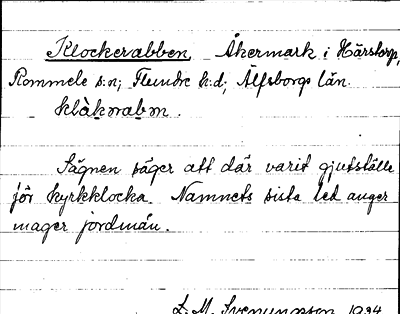 Klockerabben, Åkermark i Härstorp,
Rommele s:n; Flundre h:d; Älfsborgs län.
klåkərabm.
Sägnen säger att där varit gjutställe
för kyrkklocka. Namnets sista led anger
mager jordmån.
L. M. Svenungsson 1934